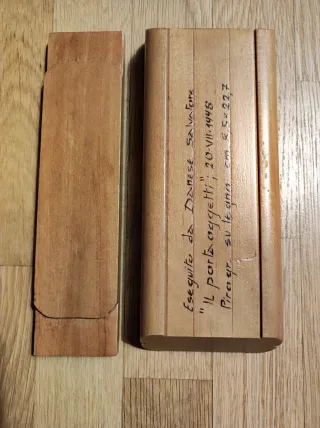 Eseguito da Danese Salvatore
"Il porta oggetti"; 20-VII-1998
Pirogr. su legno cm 8,5x22,7